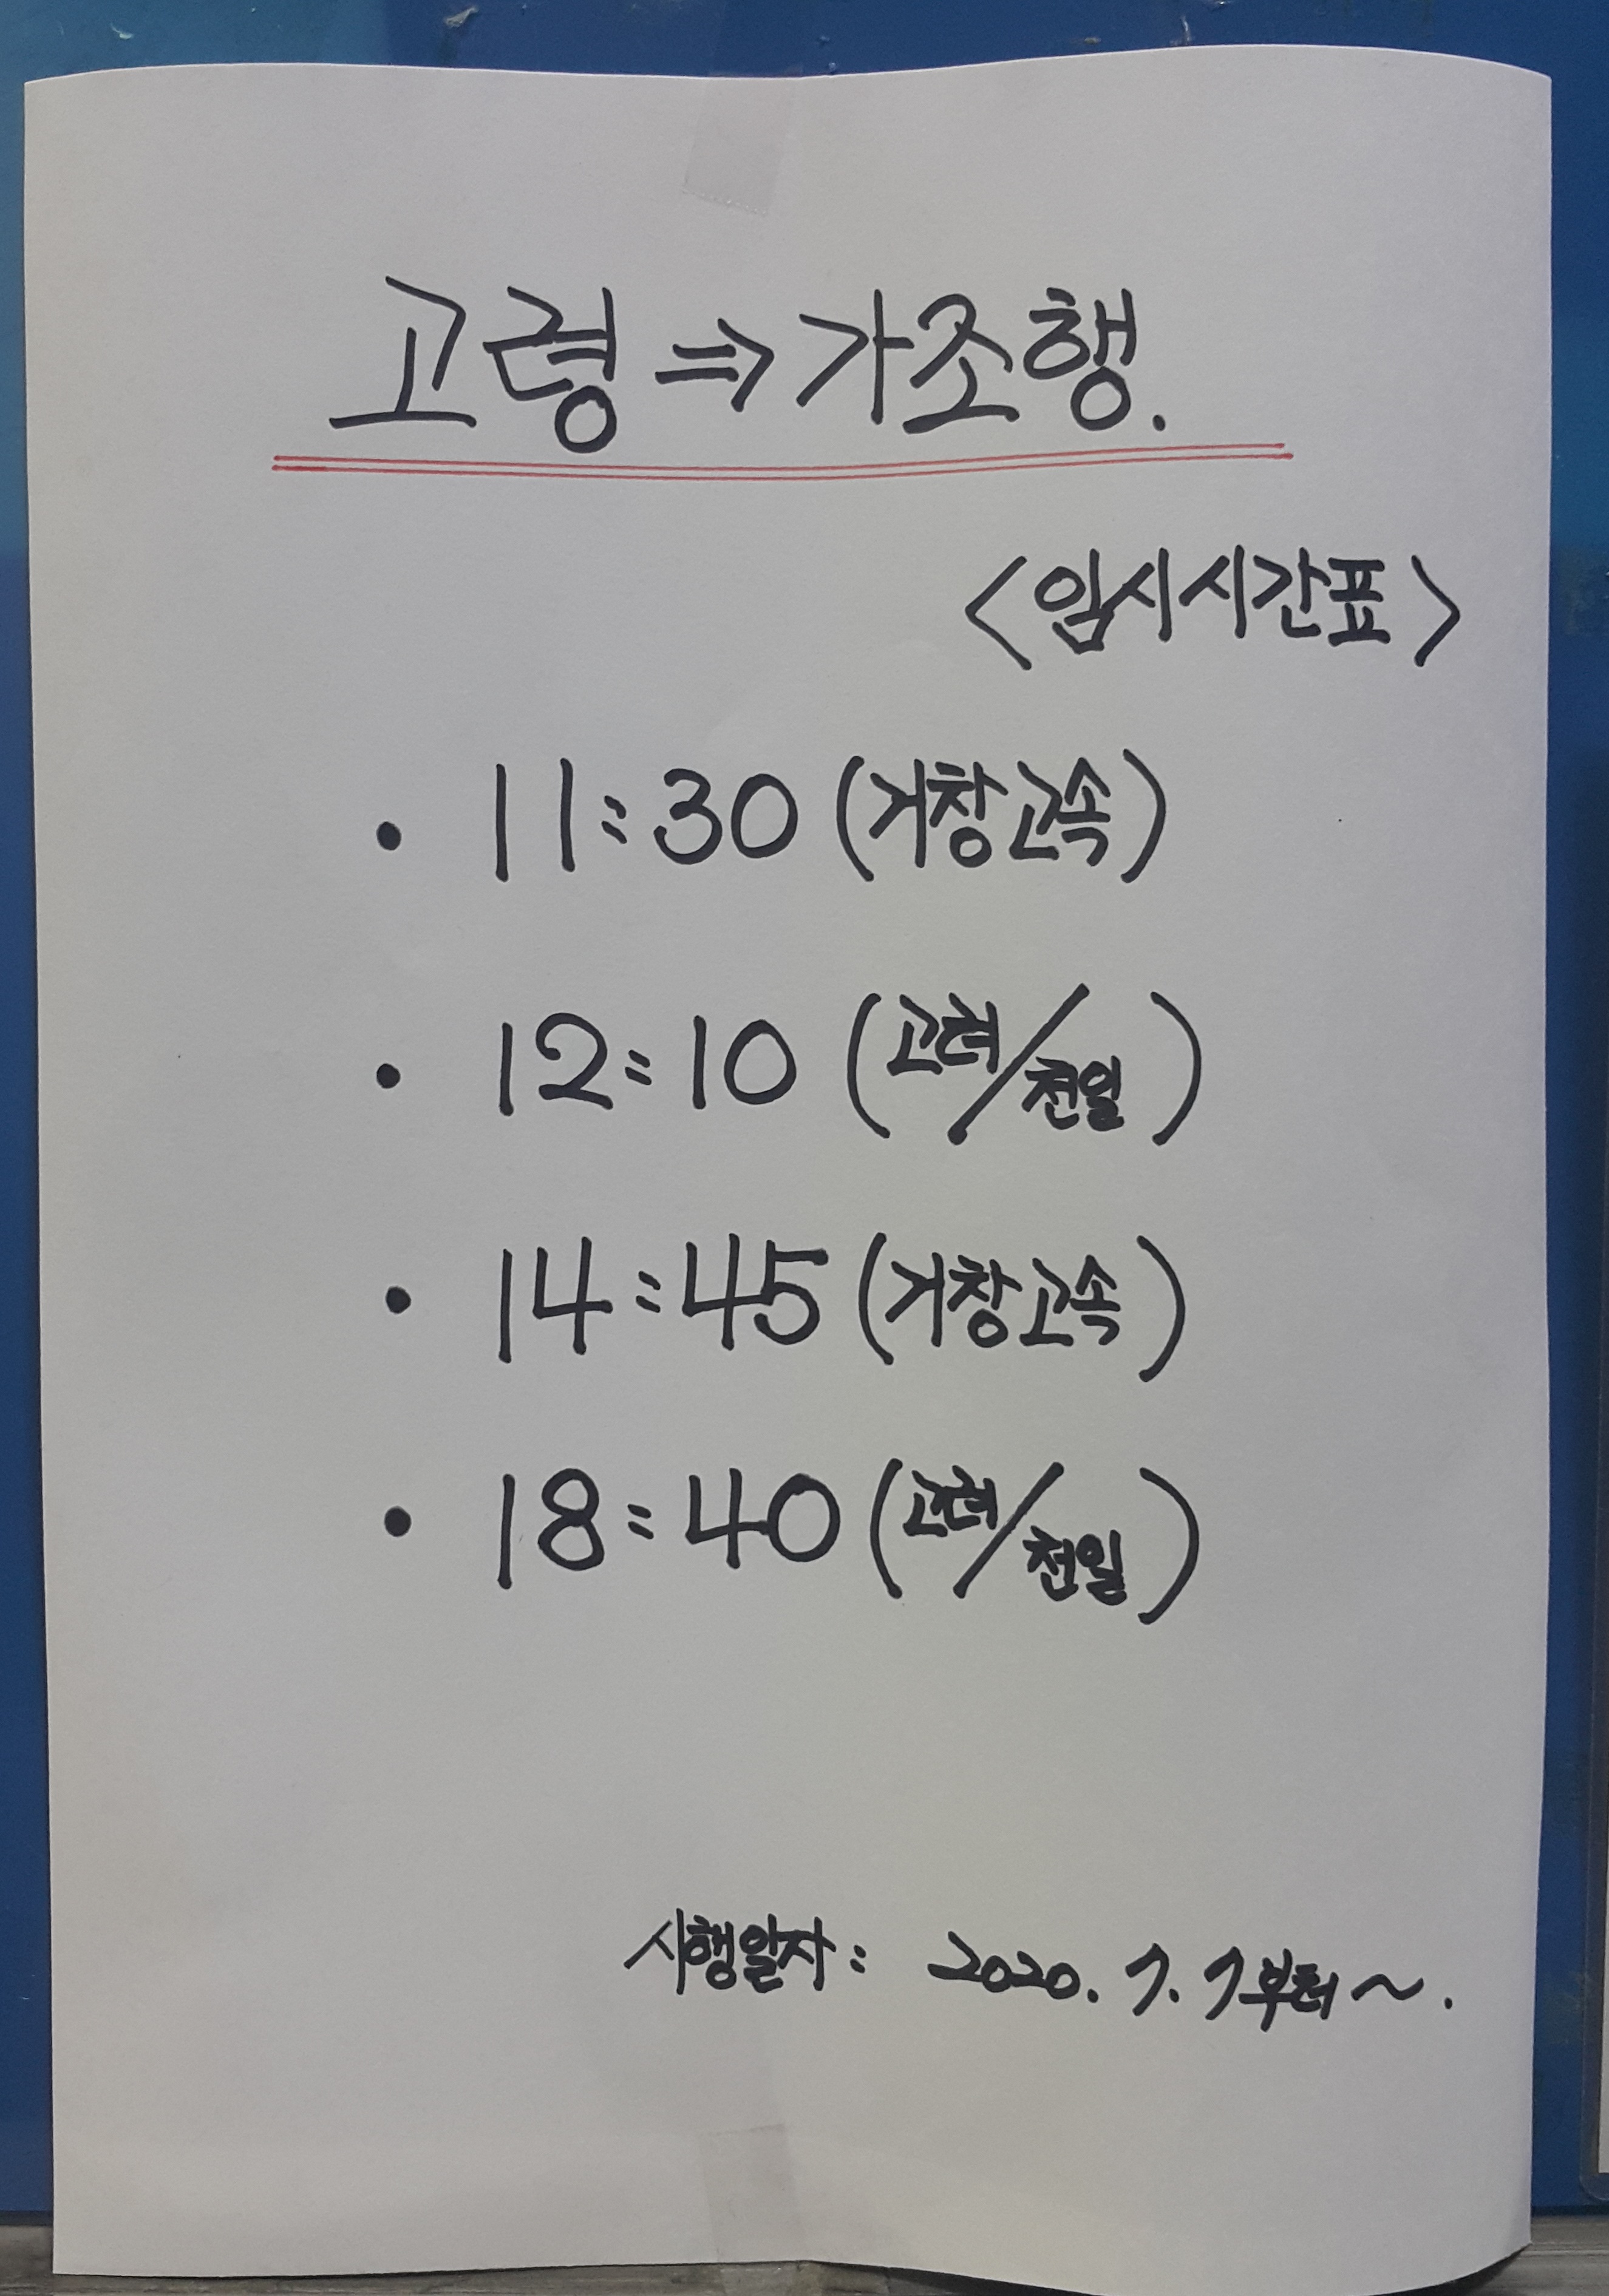 고령 ⇒ 가조행.
<임시시간표>
• 11:30 (거창고속)
• 12:10 (고려/천일)
• 14:45 (거창고속)
• 18:40 (고려/천일)
시행일자: 2020. 7. 7부터 ~.